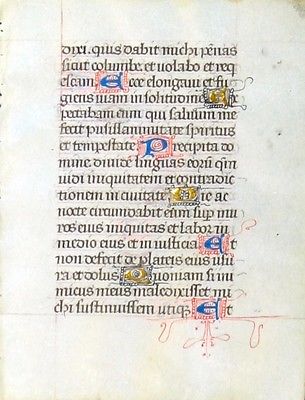 dixi. quis dabit michi penas
sicut columbe. et volabo et req
escam Ecce elongavi et fu
giens mansi in solitudine Ex
pectabam eum qui salvum me
fecit pusillanimitate spiritus
et tempestate Precipita do
mine divide linguas eorum qm
vidi iniquitatem et contradic
tionem in civitate Die ac
nocte circumdabit eum sup mu
ros eius iniquitas et labor in
medio eius et iniusticia Et
non defecit de plateis eius usu
ra et dolus Quoniam si ini
micus meus maledixisset mi
chi sustinuissem utique Et